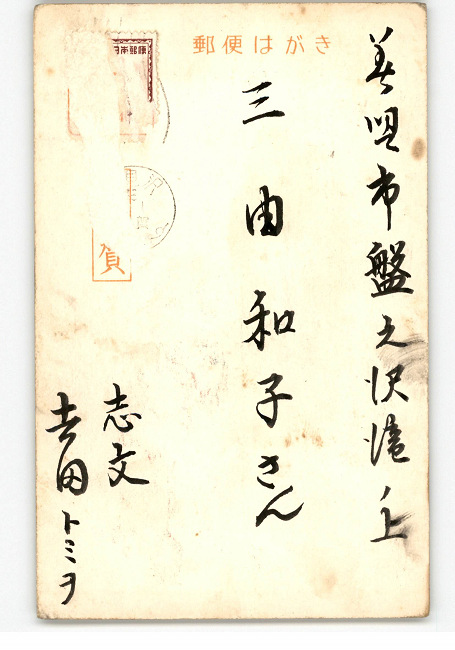 郵便はがき
日本郵便
美唄市盤之沢滝ノ上
三由和子さん
志文
吉田トミヲ